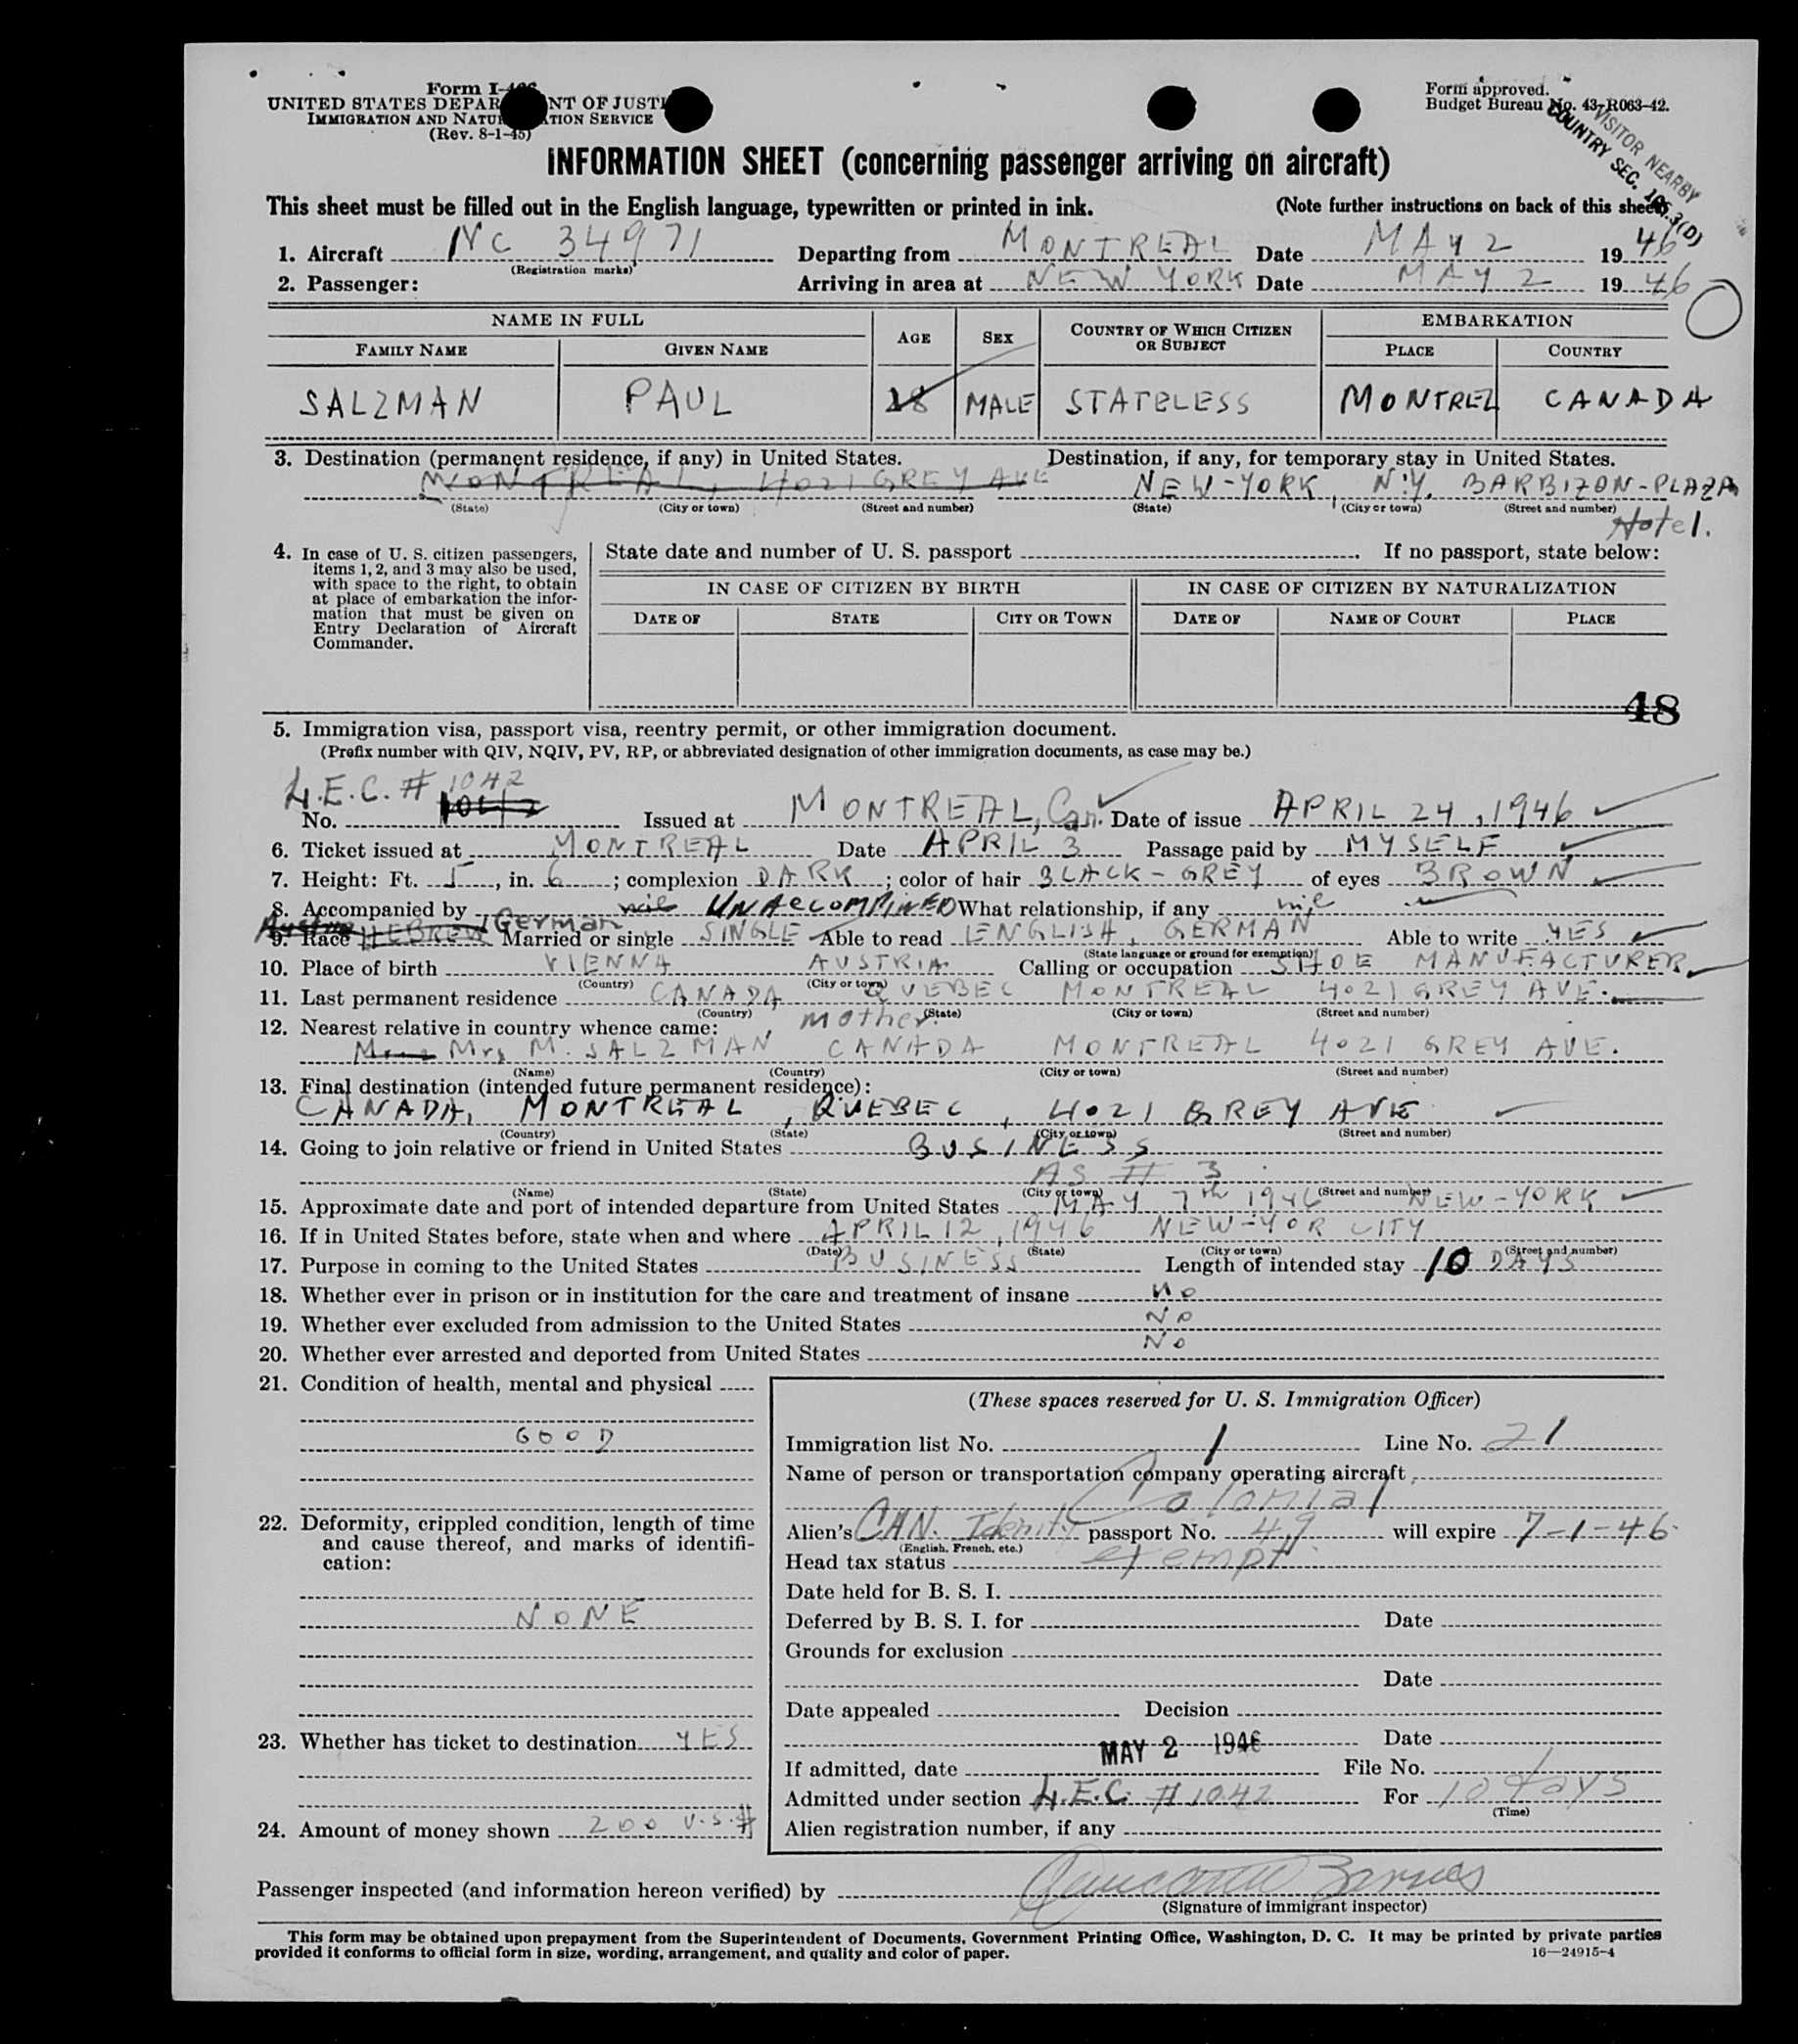 Form I-466
UNITED STATES DEPARTMENT OF JUSTICE
IMMIGRATION AND NATURALIZATION SERVICE
(Rev. 8-1-45)
Form approved.
Budget Bureau No. 43-R063-42.
VISITOR NEARBY
COUNTRY SEC. 3(D)
INFORMATION SHEET (concerning passenger arriving on aircraft)
This sheet must be filled out in the English language, typewritten or printed in ink. (Note further instructions on back of this sheet)
1. Aircraft NC 34971 Departing from MONTREAL Date MAY 2 1946
(Registration marks)
2. Passenger: Arriving in area at NEW YORK Date MAY 2 1946
NAME IN FULL AGE SEX COUNTRY OF WHICH CITIZEN OR SUBJECT EMBARKATION
FAMILY NAME GIVEN NAME PLACE COUNTRY
SALZMAN PAUL 28 MALE STATELESS MONTREL CANADA
3. Destination (permanent residence, if any) in United States. Destination, if any, for temporary stay in United States.
MONTREAL, 4021 GREY AVE NEW-YORK, N.Y. BARBIZON-PLAZA
(State) (City or town) (Street and number) (State) (City or town) (Street and number)
Hotel.
4. In case of U. S. citizen passengers, items 1, 2, and 3 may also be used, with space to the right, to obtain at place of embarkation the information that must be given on Entry Declaration of Aircraft Commander.
State date and number of U. S. passport . If no passport, state below:
IN CASE OF CITIZEN BY BIRTH IN CASE OF CITIZEN BY NATURALIZATION
DATE OF STATE CITY OR TOWN DATE OF NAME OF COURT PLACE
48
5. Immigration visa, passport visa, reentry permit, or other immigration document.
(Prefix number with QIV, NQIV, PV, RP, or abbreviated designation of other immigration documents, as case may be.)
L.E.C. # 1042
No. 1042 Issued at MONTREAL, Can. Date of issue APRIL 24, 1946
6. Ticket issued at MONTREAL Date APRIL 3 Passage paid by MYSELF
7. Height: Ft. 5, in. 6; complexion DARK; color of hair BLACK-GREY of eyes BROWN
8. Accompanied by nil UNACCOMPINED What relationship, if any nil
German
9. Race HEBREW Married or single SINGLE Able to read ENGLISH, GERMAN Able to write YES
(State language or ground for exemption)
10. Place of birth VIENNA AUSTRIA Calling or occupation SHOE MANUFACTURER
(Country) (City or town)
11. Last permanent residence CANADA QUEBEC MONTREAL 4021 GREY AVE.
(Country) (State) (City or town) (Street and number)
12. Nearest relative in country whence came: , mother.
Mrs M. SALZMAN CANADA MONTREAL 4021 GREY AVE.
(Name) (Country) (City or town) (Street and number)
13. Final destination (intended future permanent residence):
CANADA, MONTREAL, QUEBEC, 4021 GREY AVE
(Country) (State) (City or town) (Street and number)
14. Going to join relative or friend in United States BUSINESS
AS # 3
(Name) (State) (City or town) (Street and number)
15. Approximate date and port of intended departure from United States MAY 7th 1946 NEW-YORK
16. If in United States before, state when and where APRIL 12, 1946 NEW-YOR CITY
(Date) (State) (City or town) (Street and number)
17. Purpose in coming to the United States BUSINESS Length of intended stay 10 DAYS
18. Whether ever in prison or in institution for the care and treatment of insane No
19. Whether ever excluded from admission to the United States No
20. Whether ever arrested and deported from United States No
21. Condition of health, mental and physical
GOOD
22. Deformity, crippled condition, length of time and cause thereof, and marks of identification:
NONE
23. Whether has ticket to destination YES
24. Amount of money shown 200 U.S.$
(These spaces reserved for U. S. Immigration Officer)
Immigration list No. 1 Line No. 21
Name of person or transportation company operating aircraft
Colonial
Alien's CAN. Idenity passport No. 49 will expire 7-1-46
(English, French, etc.)
Head tax status exempt
Date held for B. S. I.
Deferred by B. S. I. for Date
Grounds for exclusion
Date
Date appealed Decision
Date
If admitted, date MAY 2 1946 File No.
Admitted under section L.E.C. #1042 For 10 days
(Time)
Alien registration number, if any
Passenger inspected (and information hereon verified) by
(Signature of immigrant inspector)
This form may be obtained upon prepayment from the Superintendent of Documents, Government Printing Office, Washington, D. C. It may be printed by private parties
provided it conforms to official form in size, wording, arrangement, and quality and color of paper. 16—24915-4